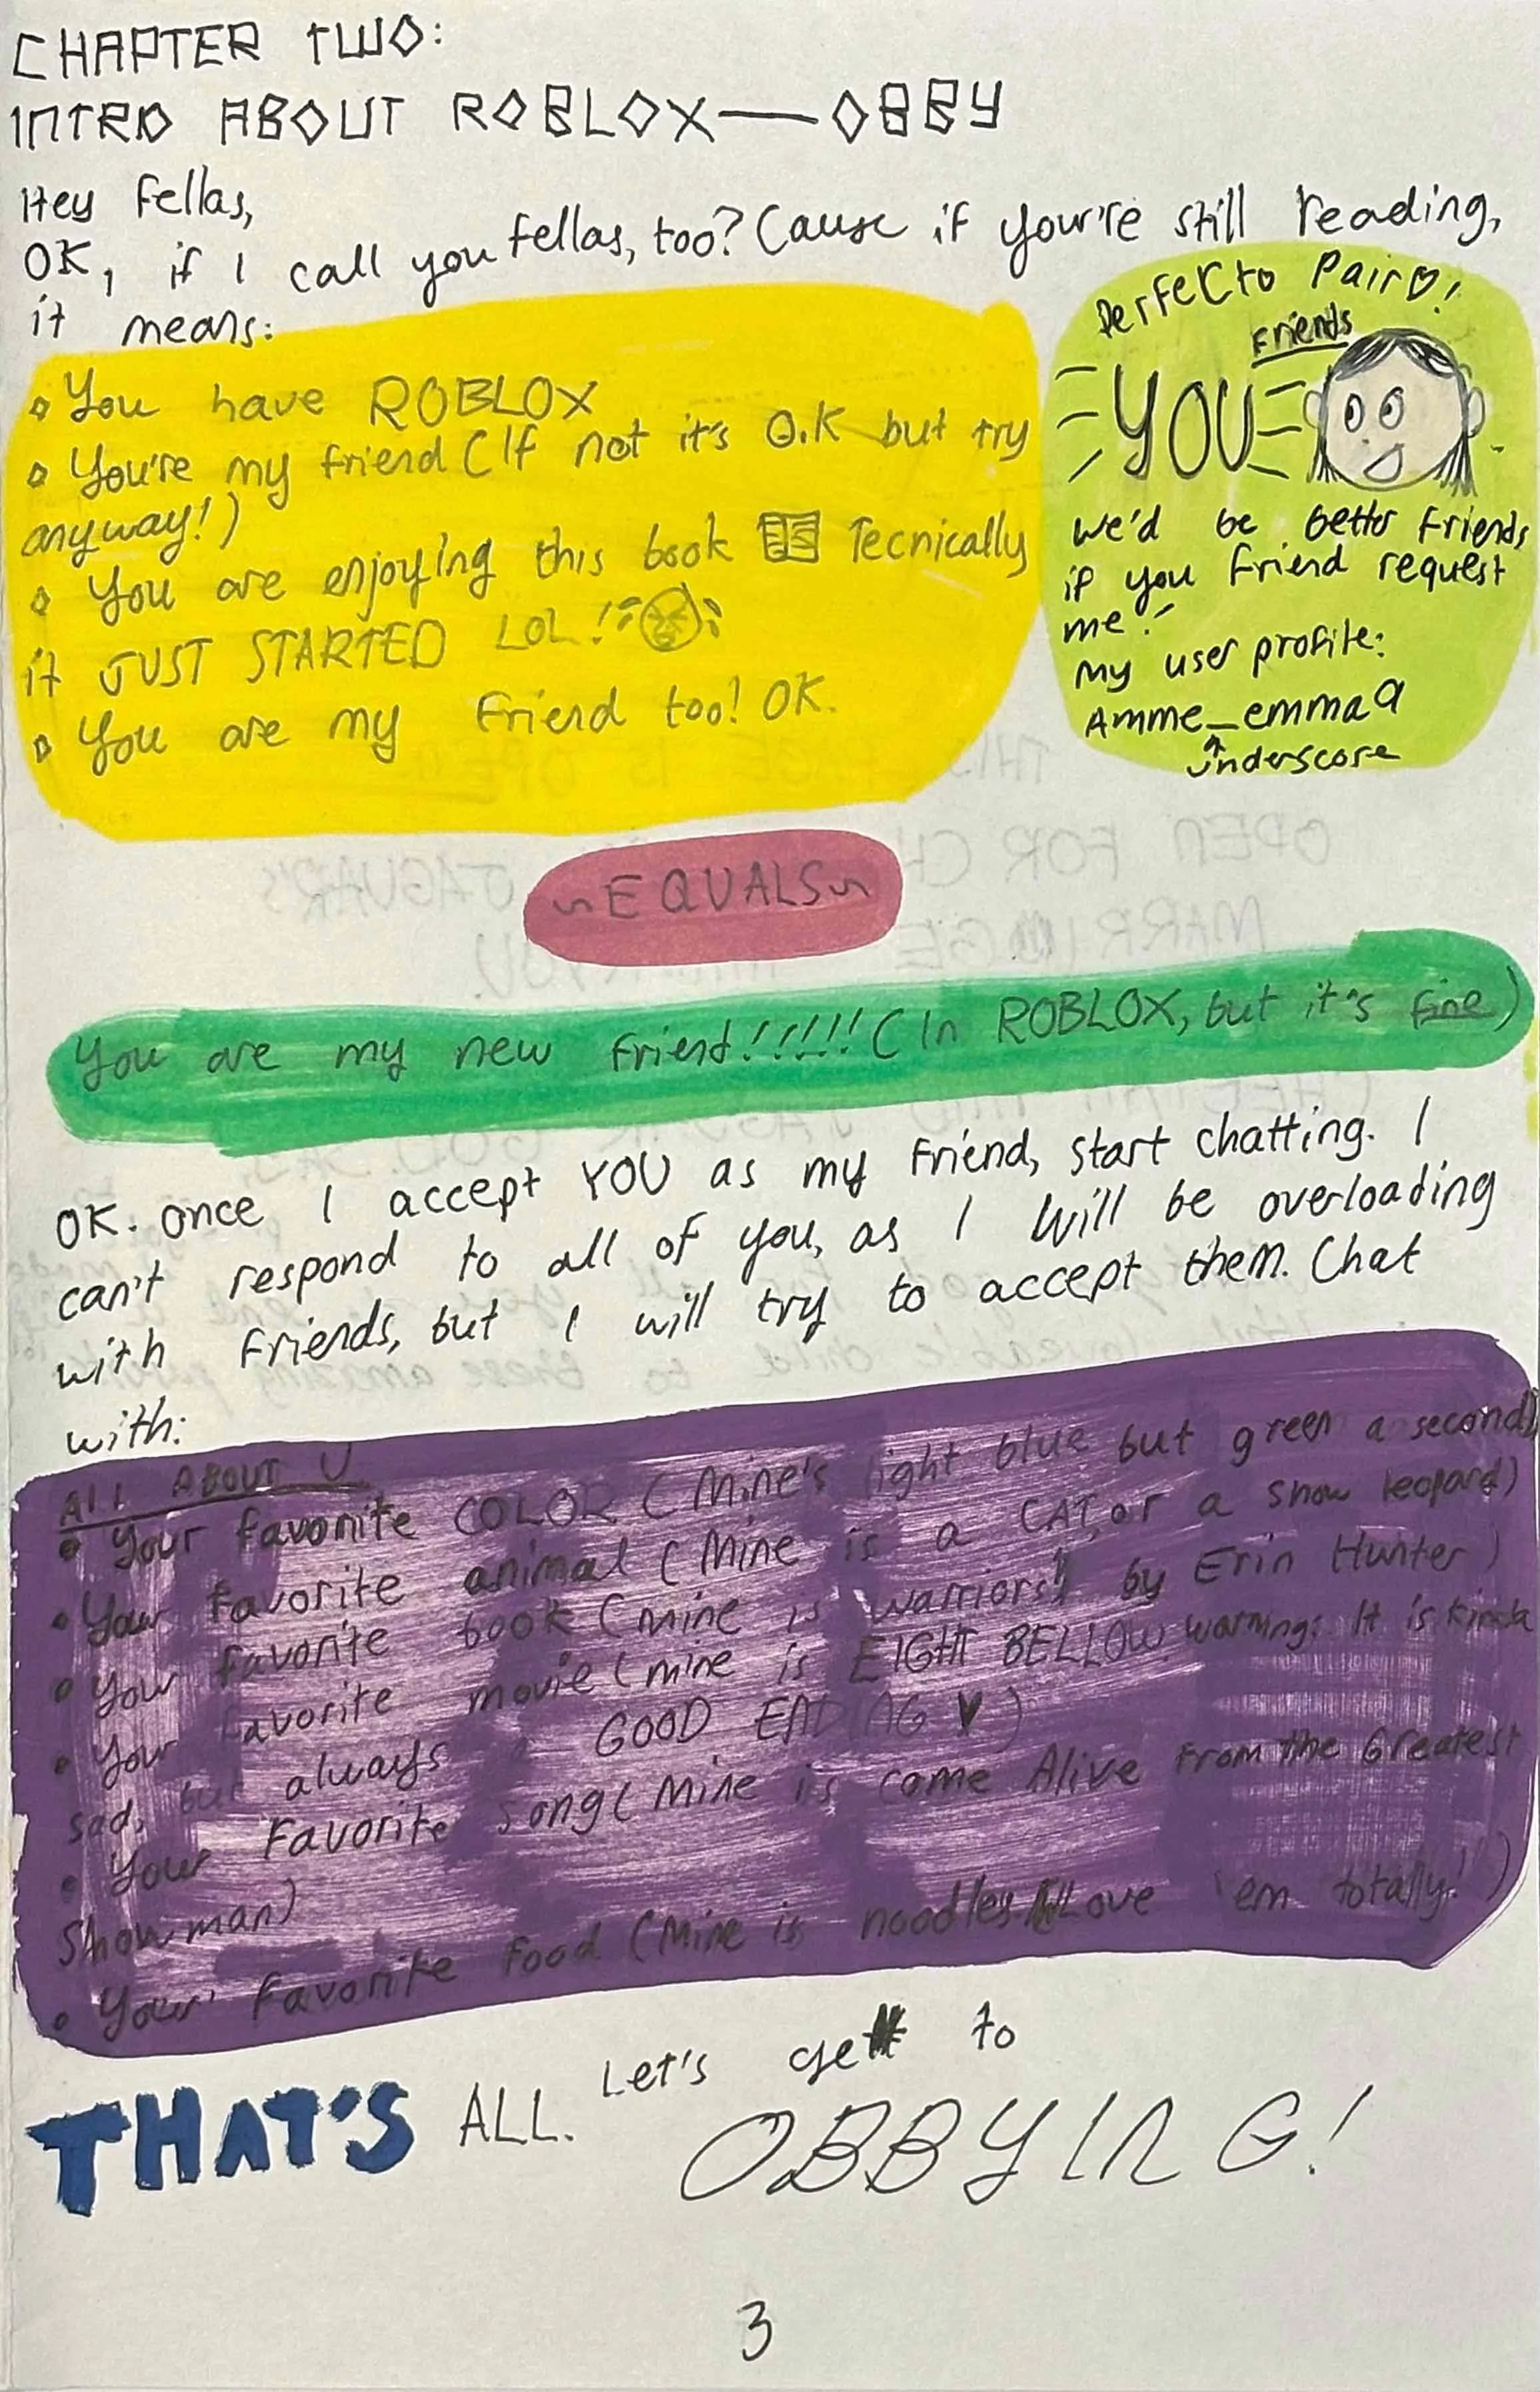 CHAPTER TWO:
INTRO ABOUT ROBLOX—OBBY
Hey fellas,
OK, if I call you fellas, too? Cause if your're still reading,
it means:
• You have ROBLOX
• You're my friend (If not it's O.K but try
anyway!)
• You are enjoying this book Tecnically
it JUST STARTED LOL!
• You are my friend too! OK.
Perfecto Pair!
Friends
YOU
We'd be better friends
if you friend request
me!
My user profile:
Amme_emma9
underscore
~EQUALS~
You are my new friend!!!!!! (In ROBLOX, but it's fine)
OK. Once I accept YOU as my friend, start chatting. I
can't respond to all of you, as I will be overloading
with friends, but I will try to accept them. Chat
with:
All ABOUT U
• Your favorite COLOR (Mine's light blue but green a second)
• Your favorite animal (Mine is a CAT, or a snow leopard)
• Your favorite book (mine is "warriors" by Erin Hunter)
• Your favorite movie (mine is EIGHT BELLOW warning: It is kinda
sad, but always a GOOD ENDING ♥)
• Your favorite song (Mine is Come Alive from the Greatest
Showman)
• Your favorite food (Mine is noodles Love 'em totally!)
THAT'S ALL. Let's get to
OBBYING!
3